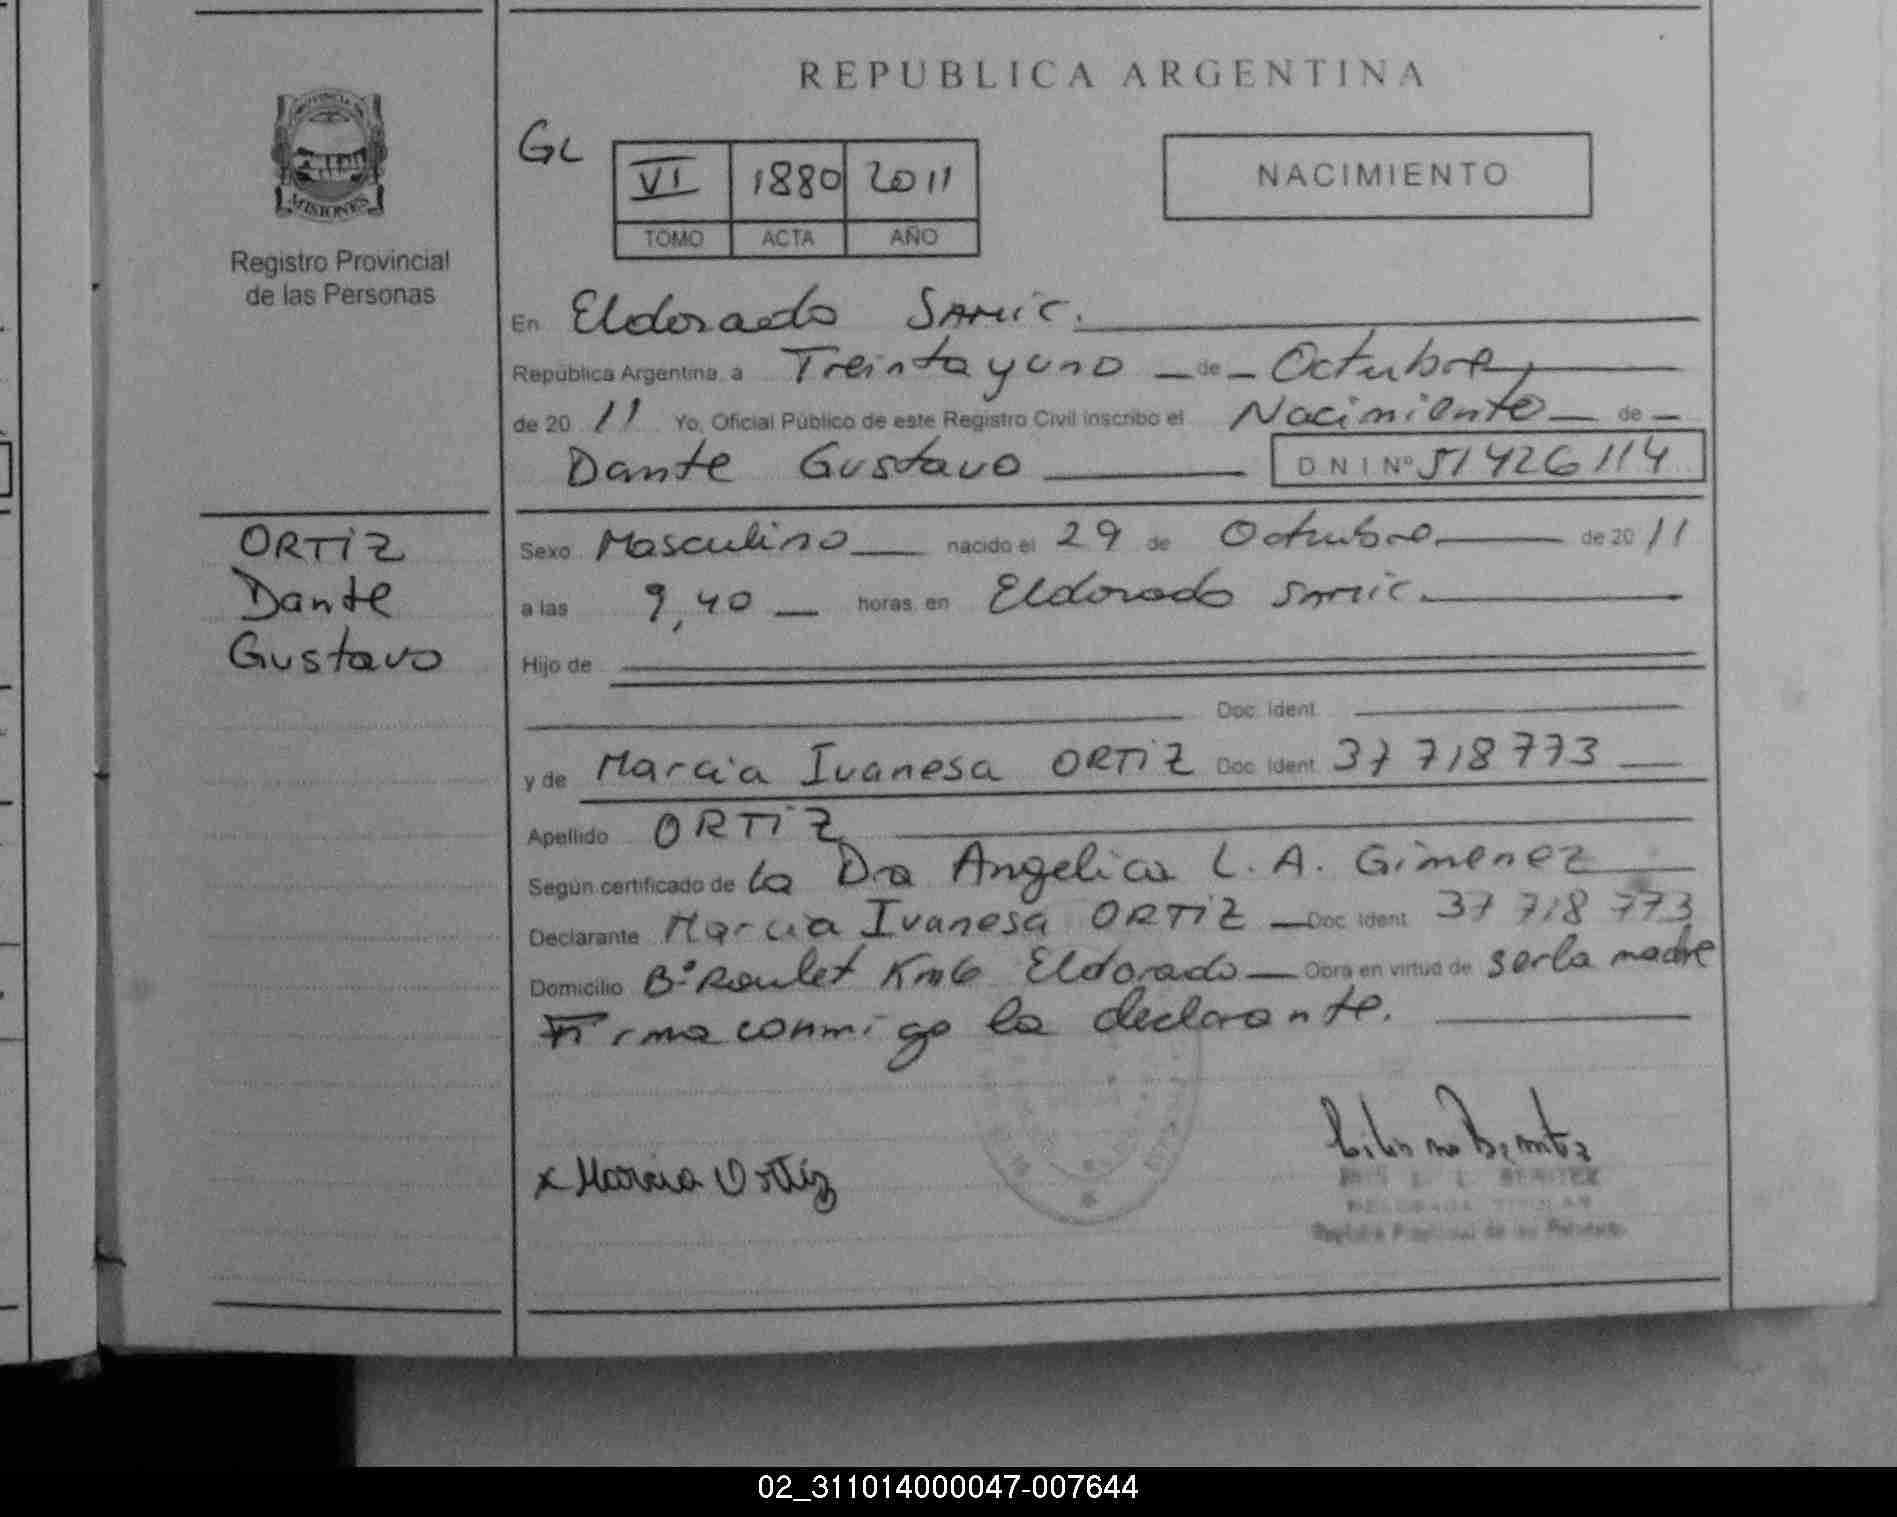 REPUBLICA ARGENTINA
PROVINCIA DE
MISIONES
Registro Provincial
de las Personas
GL
VI 1880 2011
TOMO ACTA AÑO
NACIMIENTO
En Eldorado SAMIC.
República Argentina, a Treinta y uno de Octubre,
de 20 11 Yo, Oficial Público de este Registro Civil inscribo el Nacimiento de
Dante Gustavo DNI Nº 51426114
ORTIZ
Dante
Gustavo
Sexo Masculino nacido el 29 de Octubre de 20 11
a las 9,40 horas, en Eldorado SAMIC.
Hijo de
Doc. Ident.
y de Marcia Ivanesa ORTIZ Doc. Ident. 37 718 773
Apellido ORTIZ
Según certificado de la Dra Angelica L. A. Gimenez
Declarante Marcia Ivanesa ORTIZ Doc. Ident. 37 718 773
Domicilio Bº Roulet Km6 Eldorado Obra en virtud de ser la madre
Firma conmigo la declarante.
x Marcia Ortiz
BENITEZ
DELEGADA TITULAR
Registro Provincial de las Personas
02_311014000047-007644